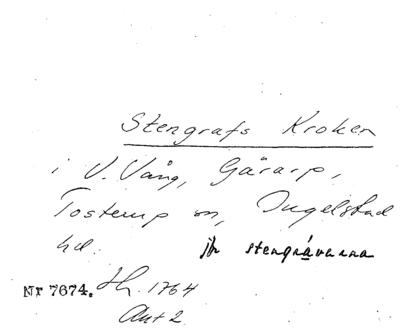 Stengrafs Kroken
i V. Vång, Gärarp,
Tosterup sn, Ingelstad
hd. jfr stengrávarna
Nr 7674. Hh. 1764
Akt 2